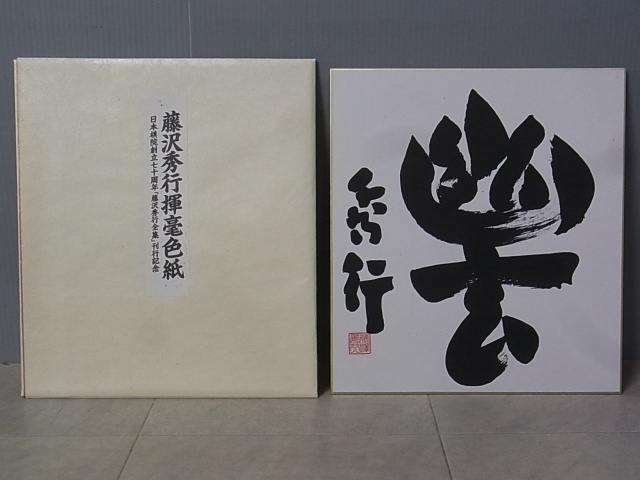 藤沢秀行揮毫色紙
日本棋院創立七十周年「藤沢秀行全集」刊行記念
秀行